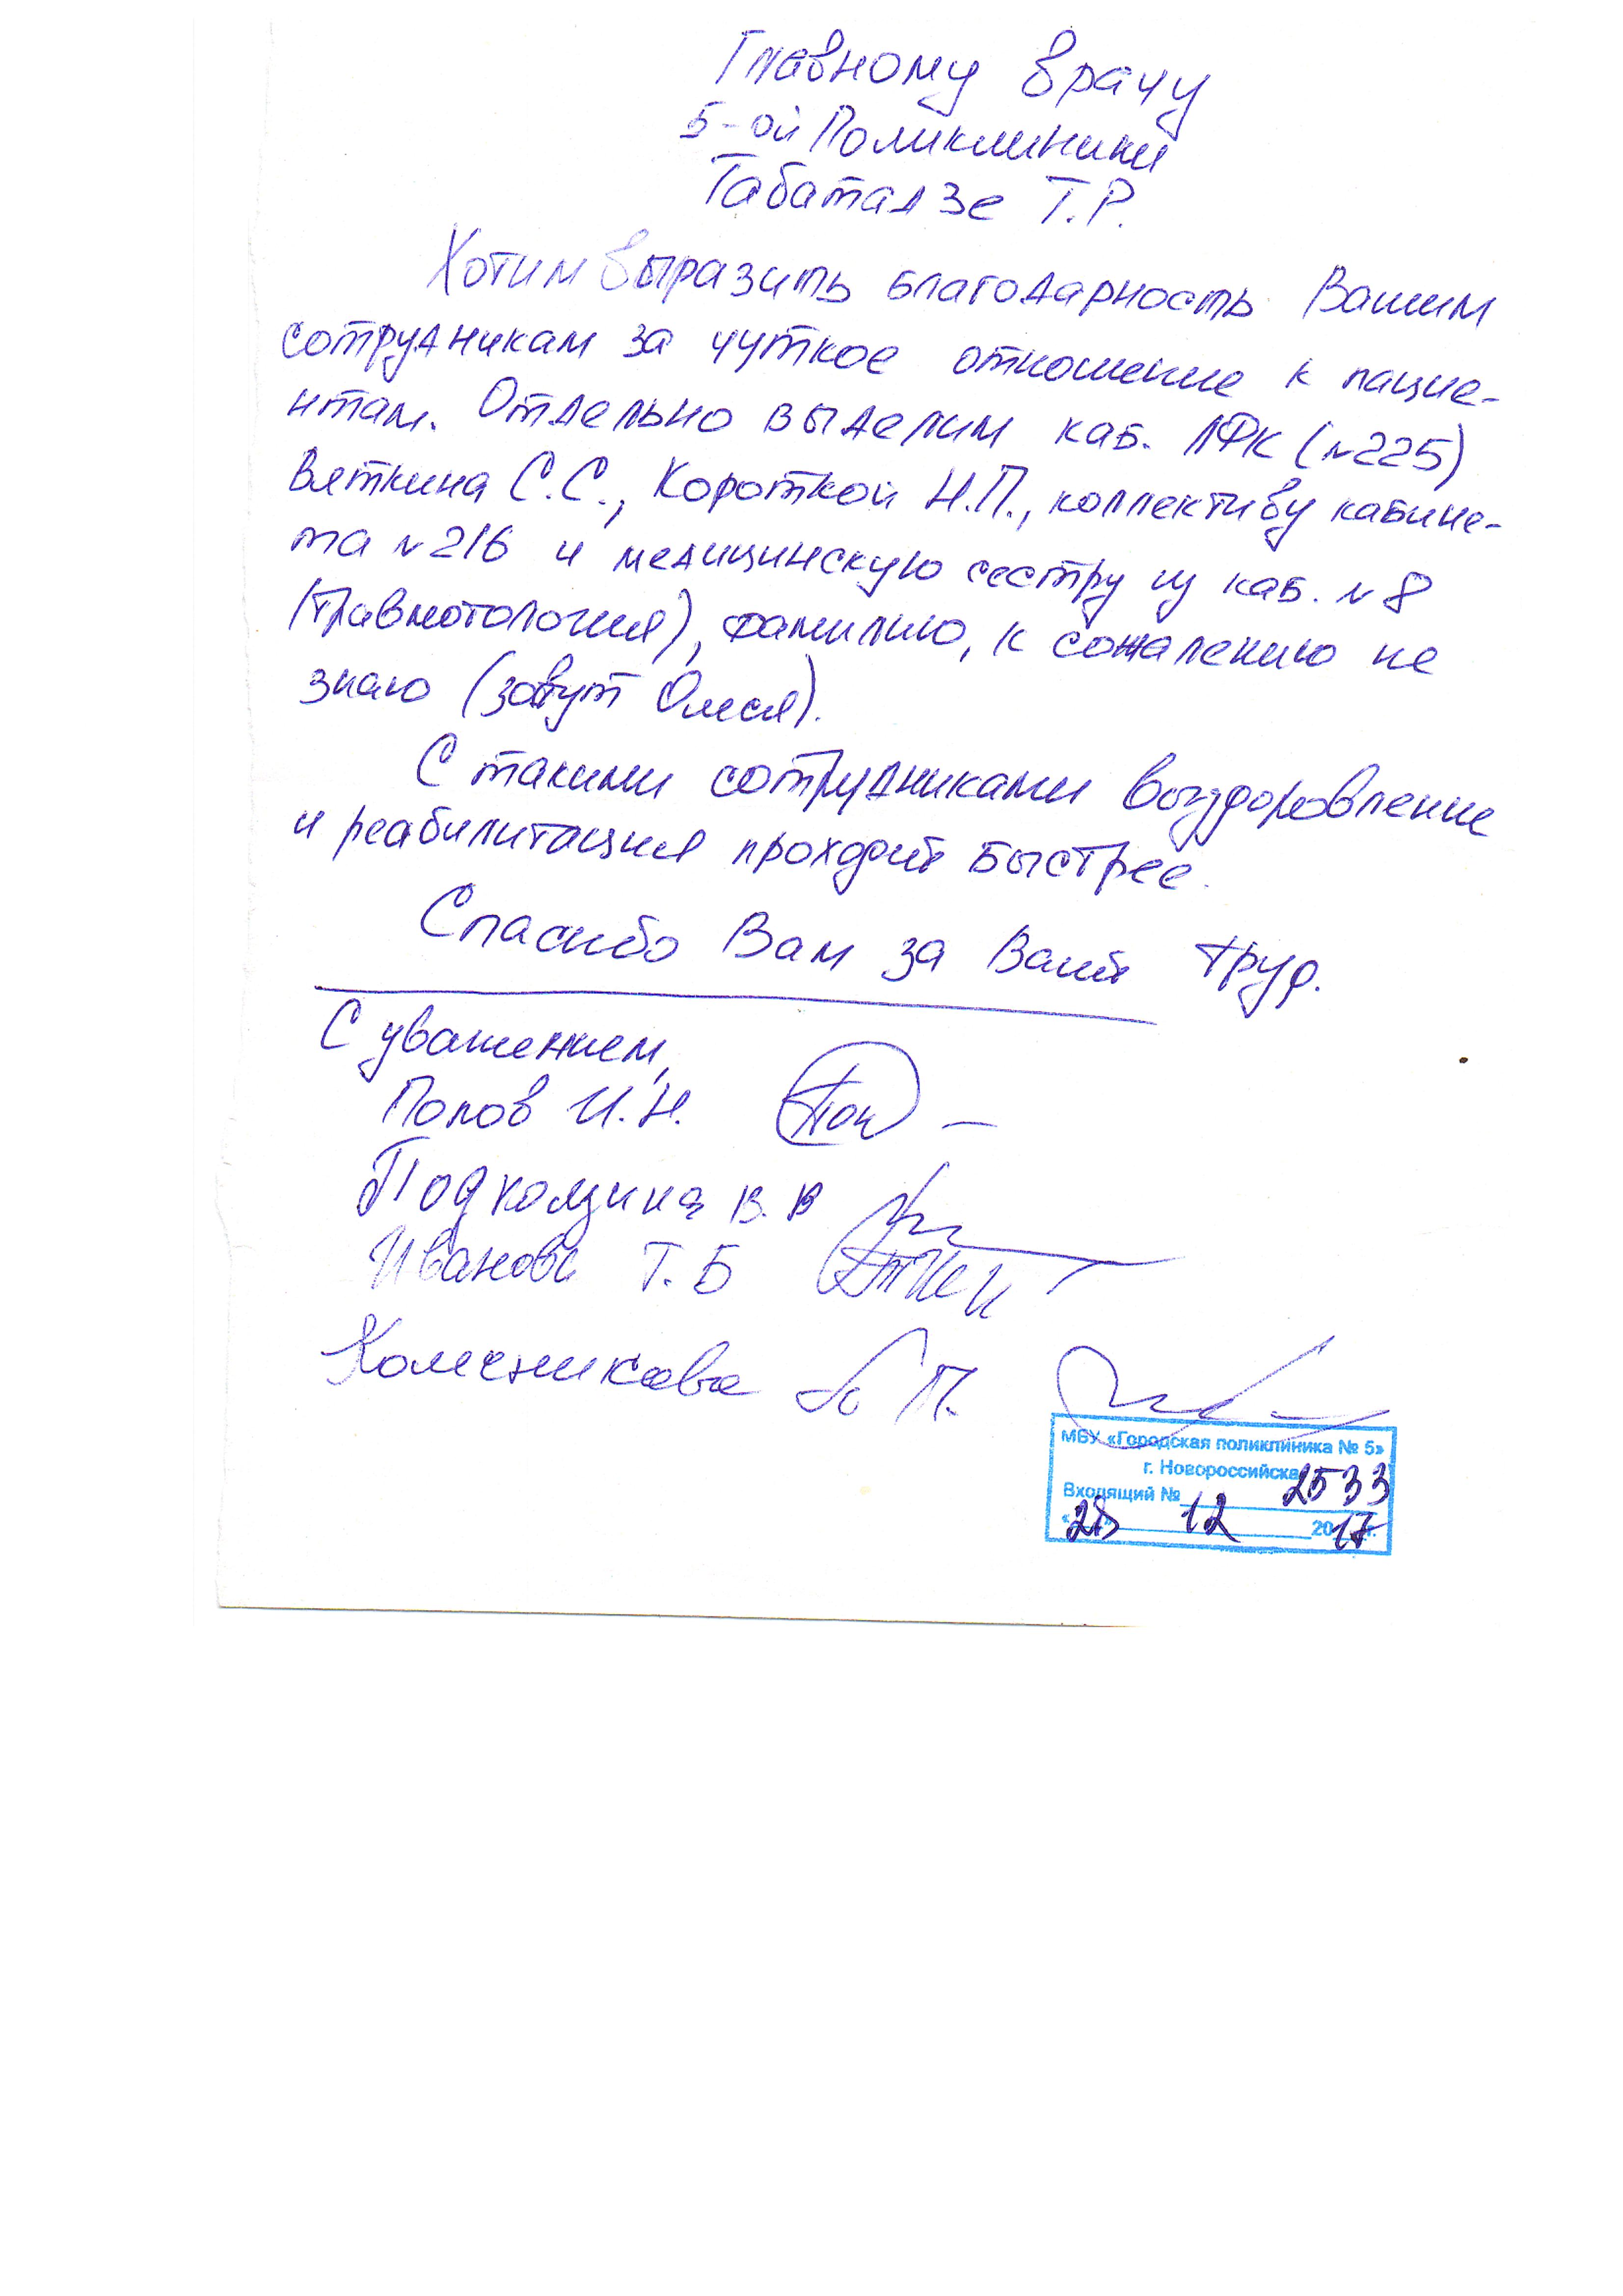 Главному врачу
5-ой Поликлиники
Табатадзе Т.Р.
Хотим выразить благодарность Вашим
сотрудникам за чуткое отношение к пацие-
нтам. Отдельно выделим каб. ЛФК (№225)
Вяткина С.С., Короткой Н.П., коллективу кабине-
та №216 и медицинскую сестру из каб. №8
(травмотология), фамилию, к сожалению не
знаю (зовут Олеся).
С такими сотрудниками выздоровление
и реабилитация проходит быстрее.
Спасибо Вам за Ваш труд.
С уважением,
Попов И.Н.
Подколзина В.В
Иванова Т.Б
Колесникова П.
МБУ «Городская поликлиника № 5»
г. Новороссийска
Входящий № 2533
«28» 12 2017г.